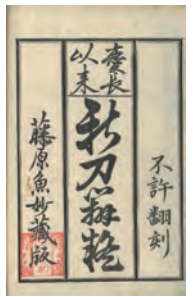 不許翻刻
慶長
以来
新刀辨疑
藤原魚妙藏版